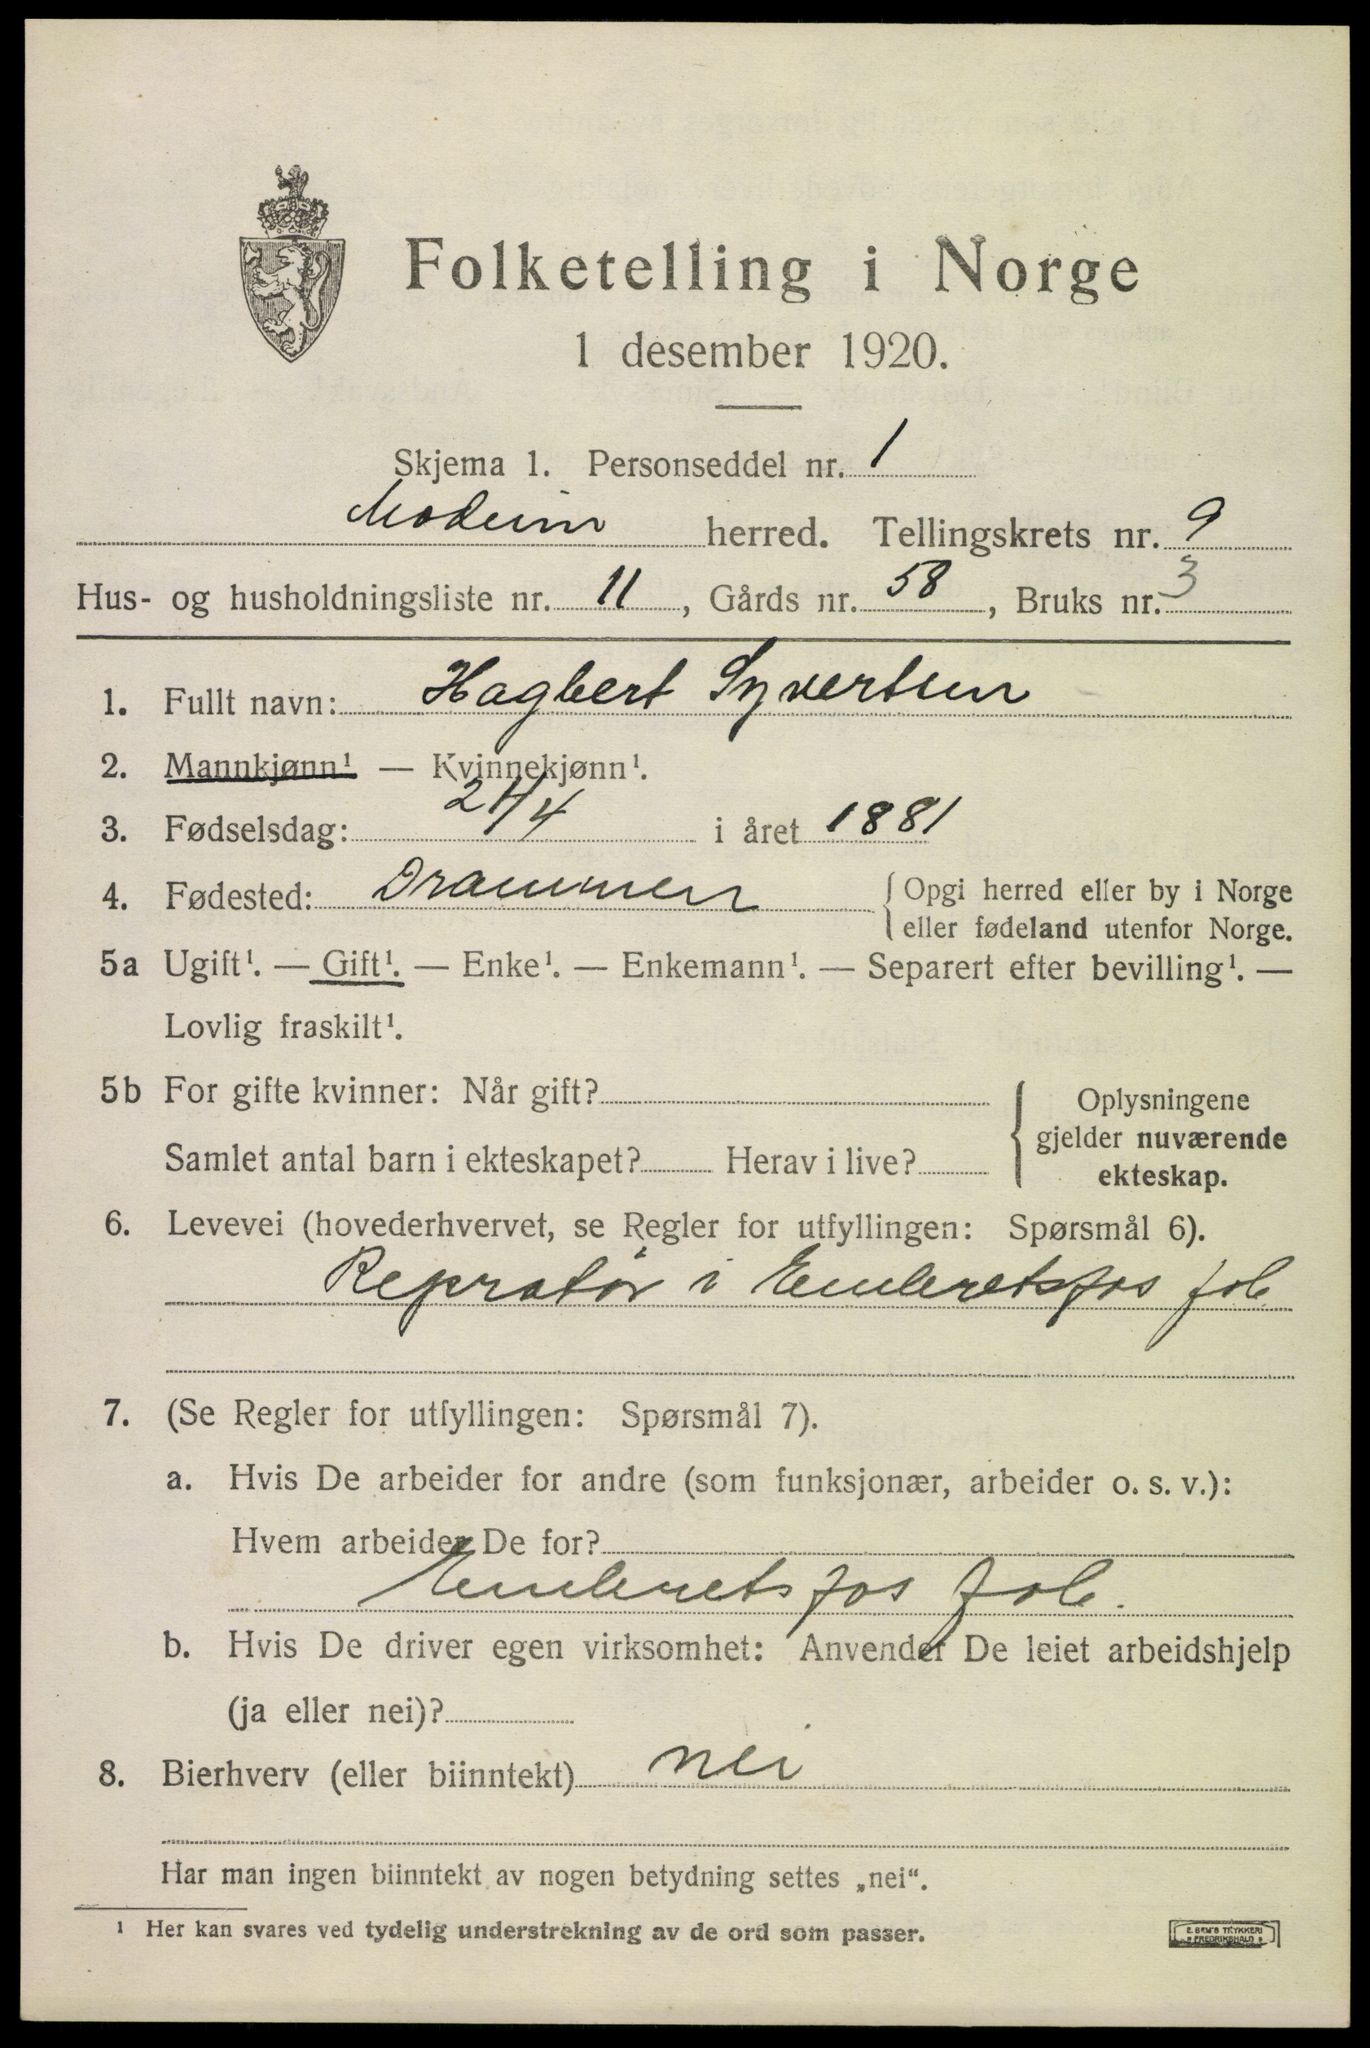 Folketelling i Norge
1 desember 1920.
Skjema 1. Personseddel nr. 1
Modum herred. Tellingskrets nr. 9
Hus- og husholdningsliste nr. 11, Gårds nr. 58, Bruks nr. 3
1. Fullt navn: Hagbert Syvertsen
2. Mannkjønn¹ — Kvinnekjønn¹.
3. Fødselsdag: 24/4 i året 1881
4. Fødested: Drammen { Opgi herred eller by i Norge
eller fødeland utenfor Norge.
5a Ugift¹. — Gift¹. — Enke¹. — Enkemann¹. — Separert efter bevilling¹. —
Lovlig fraskilt¹.
5b For gifte kvinner: Når gift? { Oplysningene
gjelder nuværende
Samlet antal barn i ekteskapet? Herav i live?
ekteskap.
6. Levevei (hovederhvervet, se Regler for utfyllingen: Spørsmål 6).
Repratør i Embretsfos fab
7. (Se Regler for utfyllingen: Spørsmål 7).
a. Hvis De arbeider for andre (som funksjonær, arbeider o. s. v.):
Hvem arbeider De for?
Embretsfos fab.
b. Hvis De driver egen virksomhet: Anvender De leiet arbeidshjelp
(ja eller nei)?
8. Bierhverv (eller biinntekt) nei
Har man ingen biinntekt av nogen betydning settes „nei“.
¹ Her kan svares ved tydelig understrekning av de ord som passer.
E. SEM'S TRYKKERI
FREDRIKSHALD